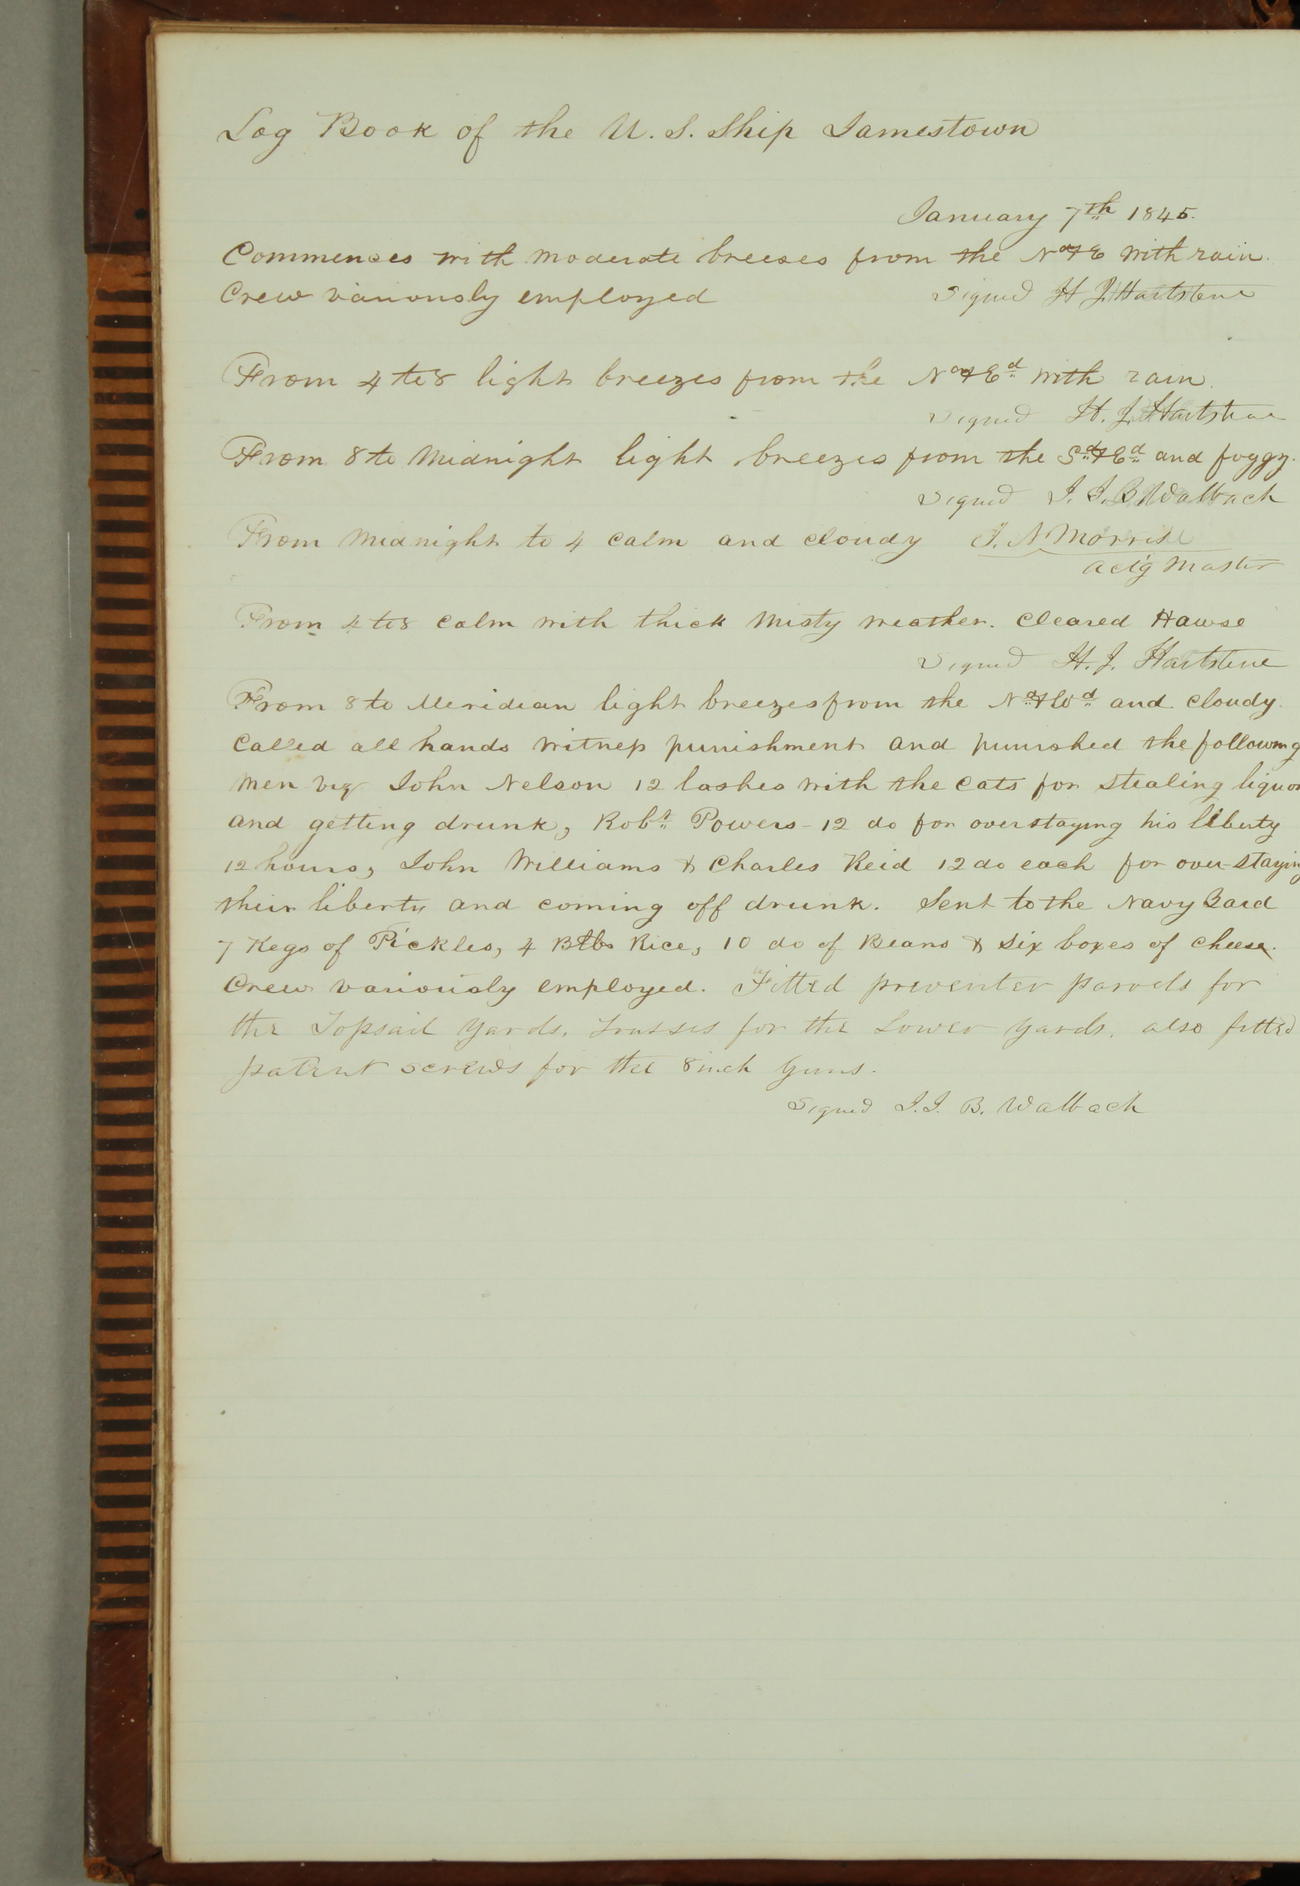 Log Book of the U. S. Ship Jamestown
January 7th 1845.
Commences with moderate breezes from the Nd & E with rain.
Crew variously employed Signed H J Hartstene
From 4 to 8 light breezes from the Nd & Ed with rain.
Signed H. J. Hartstene
From 8 to Midnight light breezes from the Sd & Ed and foggy.
Signed J. J. B. Walbach
From Midnight to 4 Calm and cloudy J. N. Morrise
actg Master
From 4 to 8 Calm with thick Misty weather. Cleared Hawse
Signed H. J. Hartstene
From 8 to Meridian light breezes from the Nd & Wd and Cloudy.
Called all hands witness punishment and punished the following
men viz John Nelson 12 lashes with the Cats for stealing liquor
and getting drunk, Robt. Powers - 12 do for overstaying his liberty
12 hours, John Williams & Charles Reid 12 do each for over-staying
their liberty and coming off drunk. Sent to the Navy Yard
7 Kegs of Pickles, 4 Btbs Rice, 10 do of Beans & six boxes of cheese.
Crew variously employed. Fitted preventer parrels for
the Topsail Yards, Trusses for the Lower Yards, also fitted
patent screws for the 8 inch Guns.
Signed J. J. B. Walbach